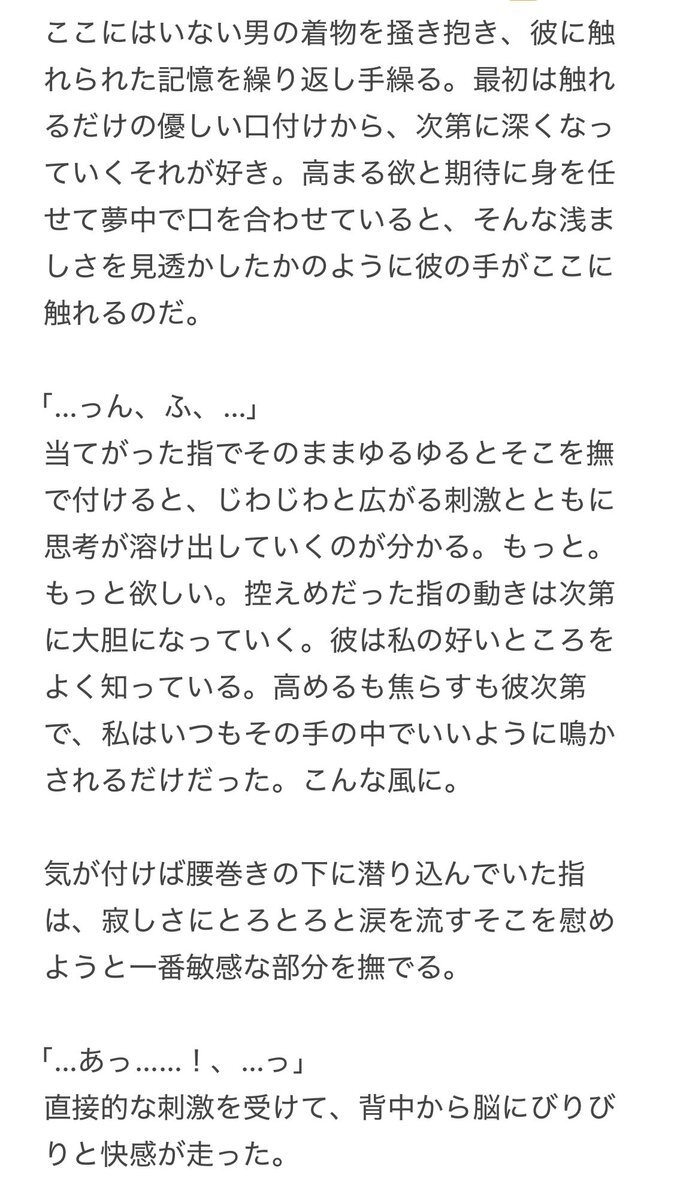 ここにはいない男の着物を掻き抱き、彼に触
れられた記憶を繰り返し手繰る。最初は触れ
るだけの優しい口付けから、次第に深くなっ
ていくそれが好き。高まる欲と期待に身を任
せて夢中で口を合わせていると、そんな浅ま
しさを見透かしたかのように彼の手がここに
触れるのだ。
「…っん、ふ、…」
当てがった指でそのままゆるゆるとそこを撫
で付けると、じわじわと広がる刺激とともに
思考が溶け出していくのが分かる。もっと。
もっと欲しい。控えめだった指の動きは次第
に大胆になっていく。彼は私の好いところを
よく知っている。高めるも焦らすも彼次第
で、私はいつもその手の中でいいように鳴か
されるだけだった。こんな風に。
気が付けば腰巻きの下に潜り込んでいた指
は、寂しさにとろとろと涙を流すそこを慰め
ようと一番敏感な部分を撫でる。
「…あっ……！、…っ」
直接的な刺激を受けて、背中から脳にびりび
りと快感が走った。